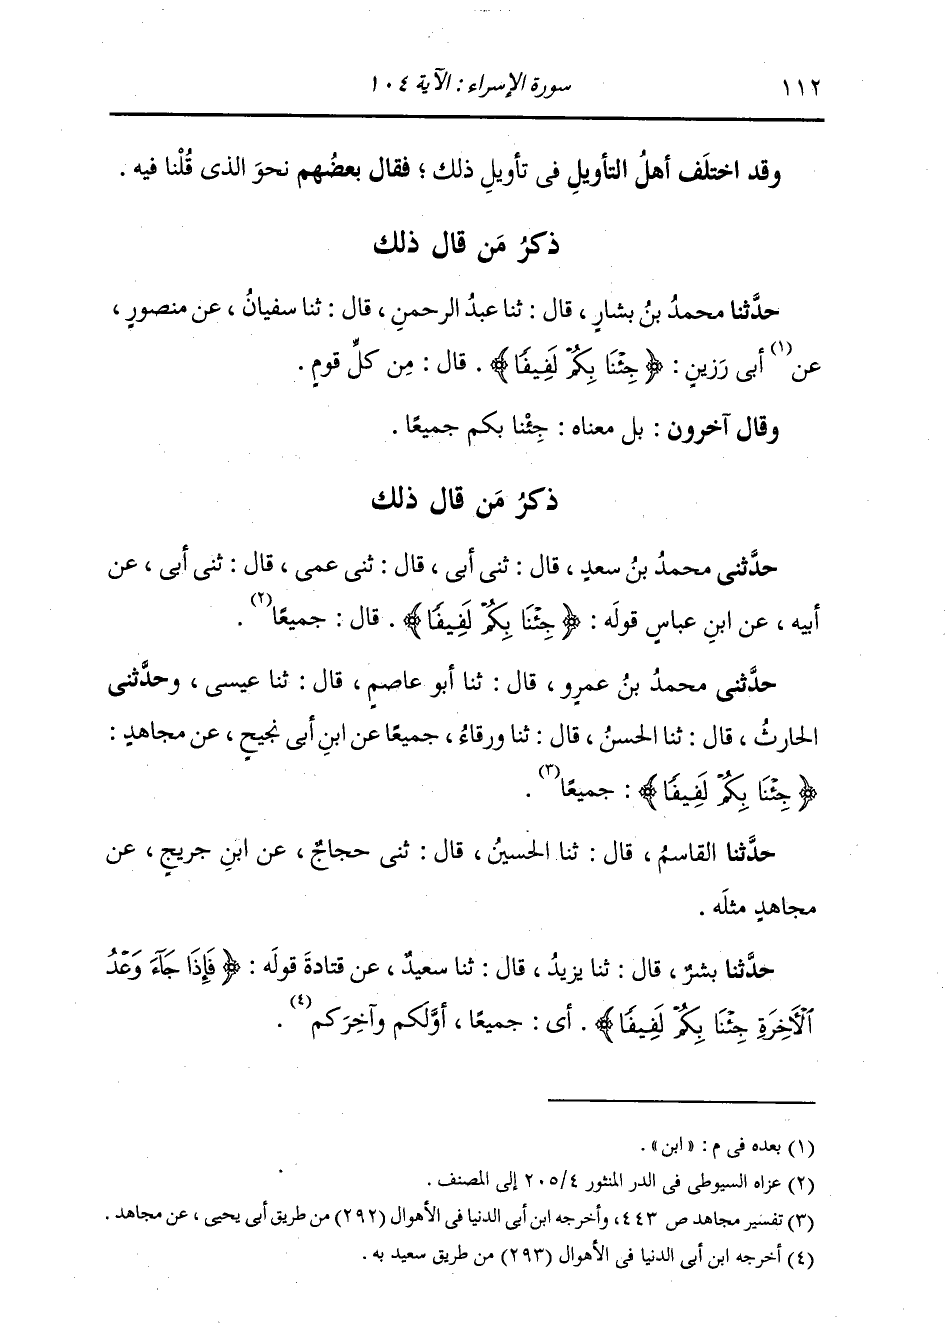 ١١٢ سورة الإسراء : الآية ١٠٤
وقد اختلَف أهلُ التأويلِ فى تأويلِ ذلك ؛ فقال بعضُهم نحوَ الذى قُلْنا فيه .
ذكرُ مَن قال ذلك
حدَّثنا محمدُ بنُ بشارٍ ، قال : ثنا عبدُ الرحمنِ ، قال : ثنا سفيانُ ، عن منصورٍ ،
عن (١) أبى رَزينٍ : ﴿ جِئْنَا بِكُمْ لَفِيفًا ﴾ . قال : مِن كلِّ قومٍ .
وقال آخرون : بل معناه : جِئْنا بكم جميعًا .
ذكرُ مَن قال ذلك
حدَّثنى محمدُ بنُ سعدٍ ، قال : ثنى أبى ، قال : ثنى عمى ، قال : ثنى أبى ، عن
أبيه ، عن ابنِ عباسٍ قولَه : ﴿ جِئْنَا بِكُمْ لَفِيفًا ﴾ . قال : جميعًا (٢) .
حدَّثنى محمدُ بنُ عمرٍو ، قال : ثنا أبو عاصمٍ ، قال : ثنا عيسى ، وحدَّثنى
الحارثُ ، قال : ثنا الحسنُ ، قال : ثنا ورقاءُ ، جميعًا عن ابنِ أبى نجيحٍ ، عن مجاهدٍ :
﴿ جِئْنَا بِكُمْ لَفِيفًا ﴾ : جميعًا (٣) .
حدَّثنا القاسمُ ، قال : ثنا الحسينُ ، قال : ثنى حجاجٌ ، عن ابنِ جريجٍ ، عن
مجاهدٍ مثلَه .
حدَّثنا بشرٌ ، قال : ثنا يزيدُ ، قال : ثنا سعيدٌ ، عن قتادةَ قولَه : ﴿ فَإِذَا جَآءَ وَعْدُ
ٱلْأَخِرَةِ جِئْنَا بِكُمْ لَفِيفًا ﴾ . أى : جميعًا ، أوَّلَكم وآخِرَكم (٤) .
(١) بعده فى م : « ابن » .
(٢) عزاه السيوطى فى الدر المنثور ٢٠٥/٤ إلى المصنف .
(٣) تفسير مجاهد ص ٤٤٣ ، وأخرجه ابن أبى الدنيا فى الأهوال (٢٩٢) من طريق أبى يحيى ، عن مجاهد .
(٤) أخرجه ابن أبى الدنيا فى الأهوال (٢٩٣) من طريق سعيد به .